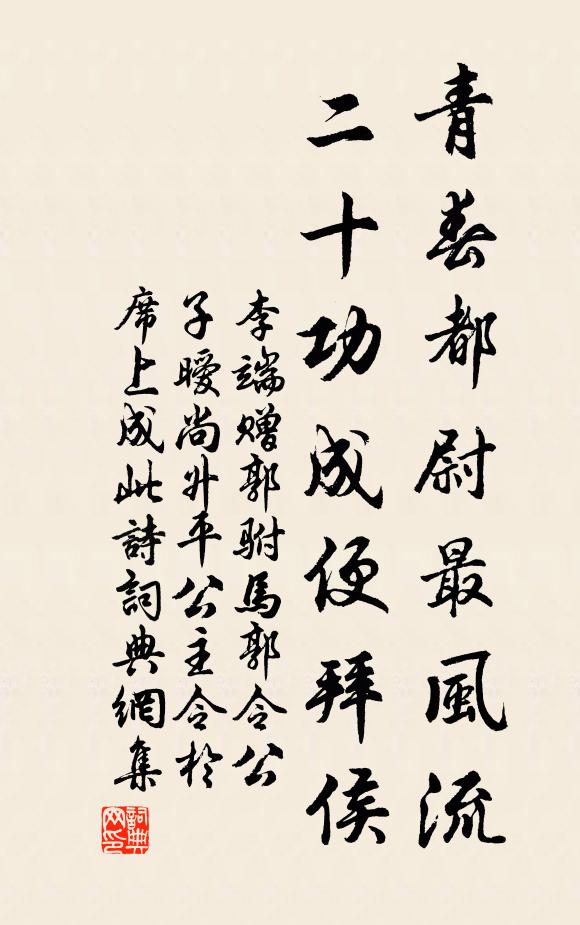 青春都尉最風流
二十功成便拜侯
李端贈郭駙馬郭令公
子曖尚升平公主令於
席上成此詩詞典網集
詞典網印